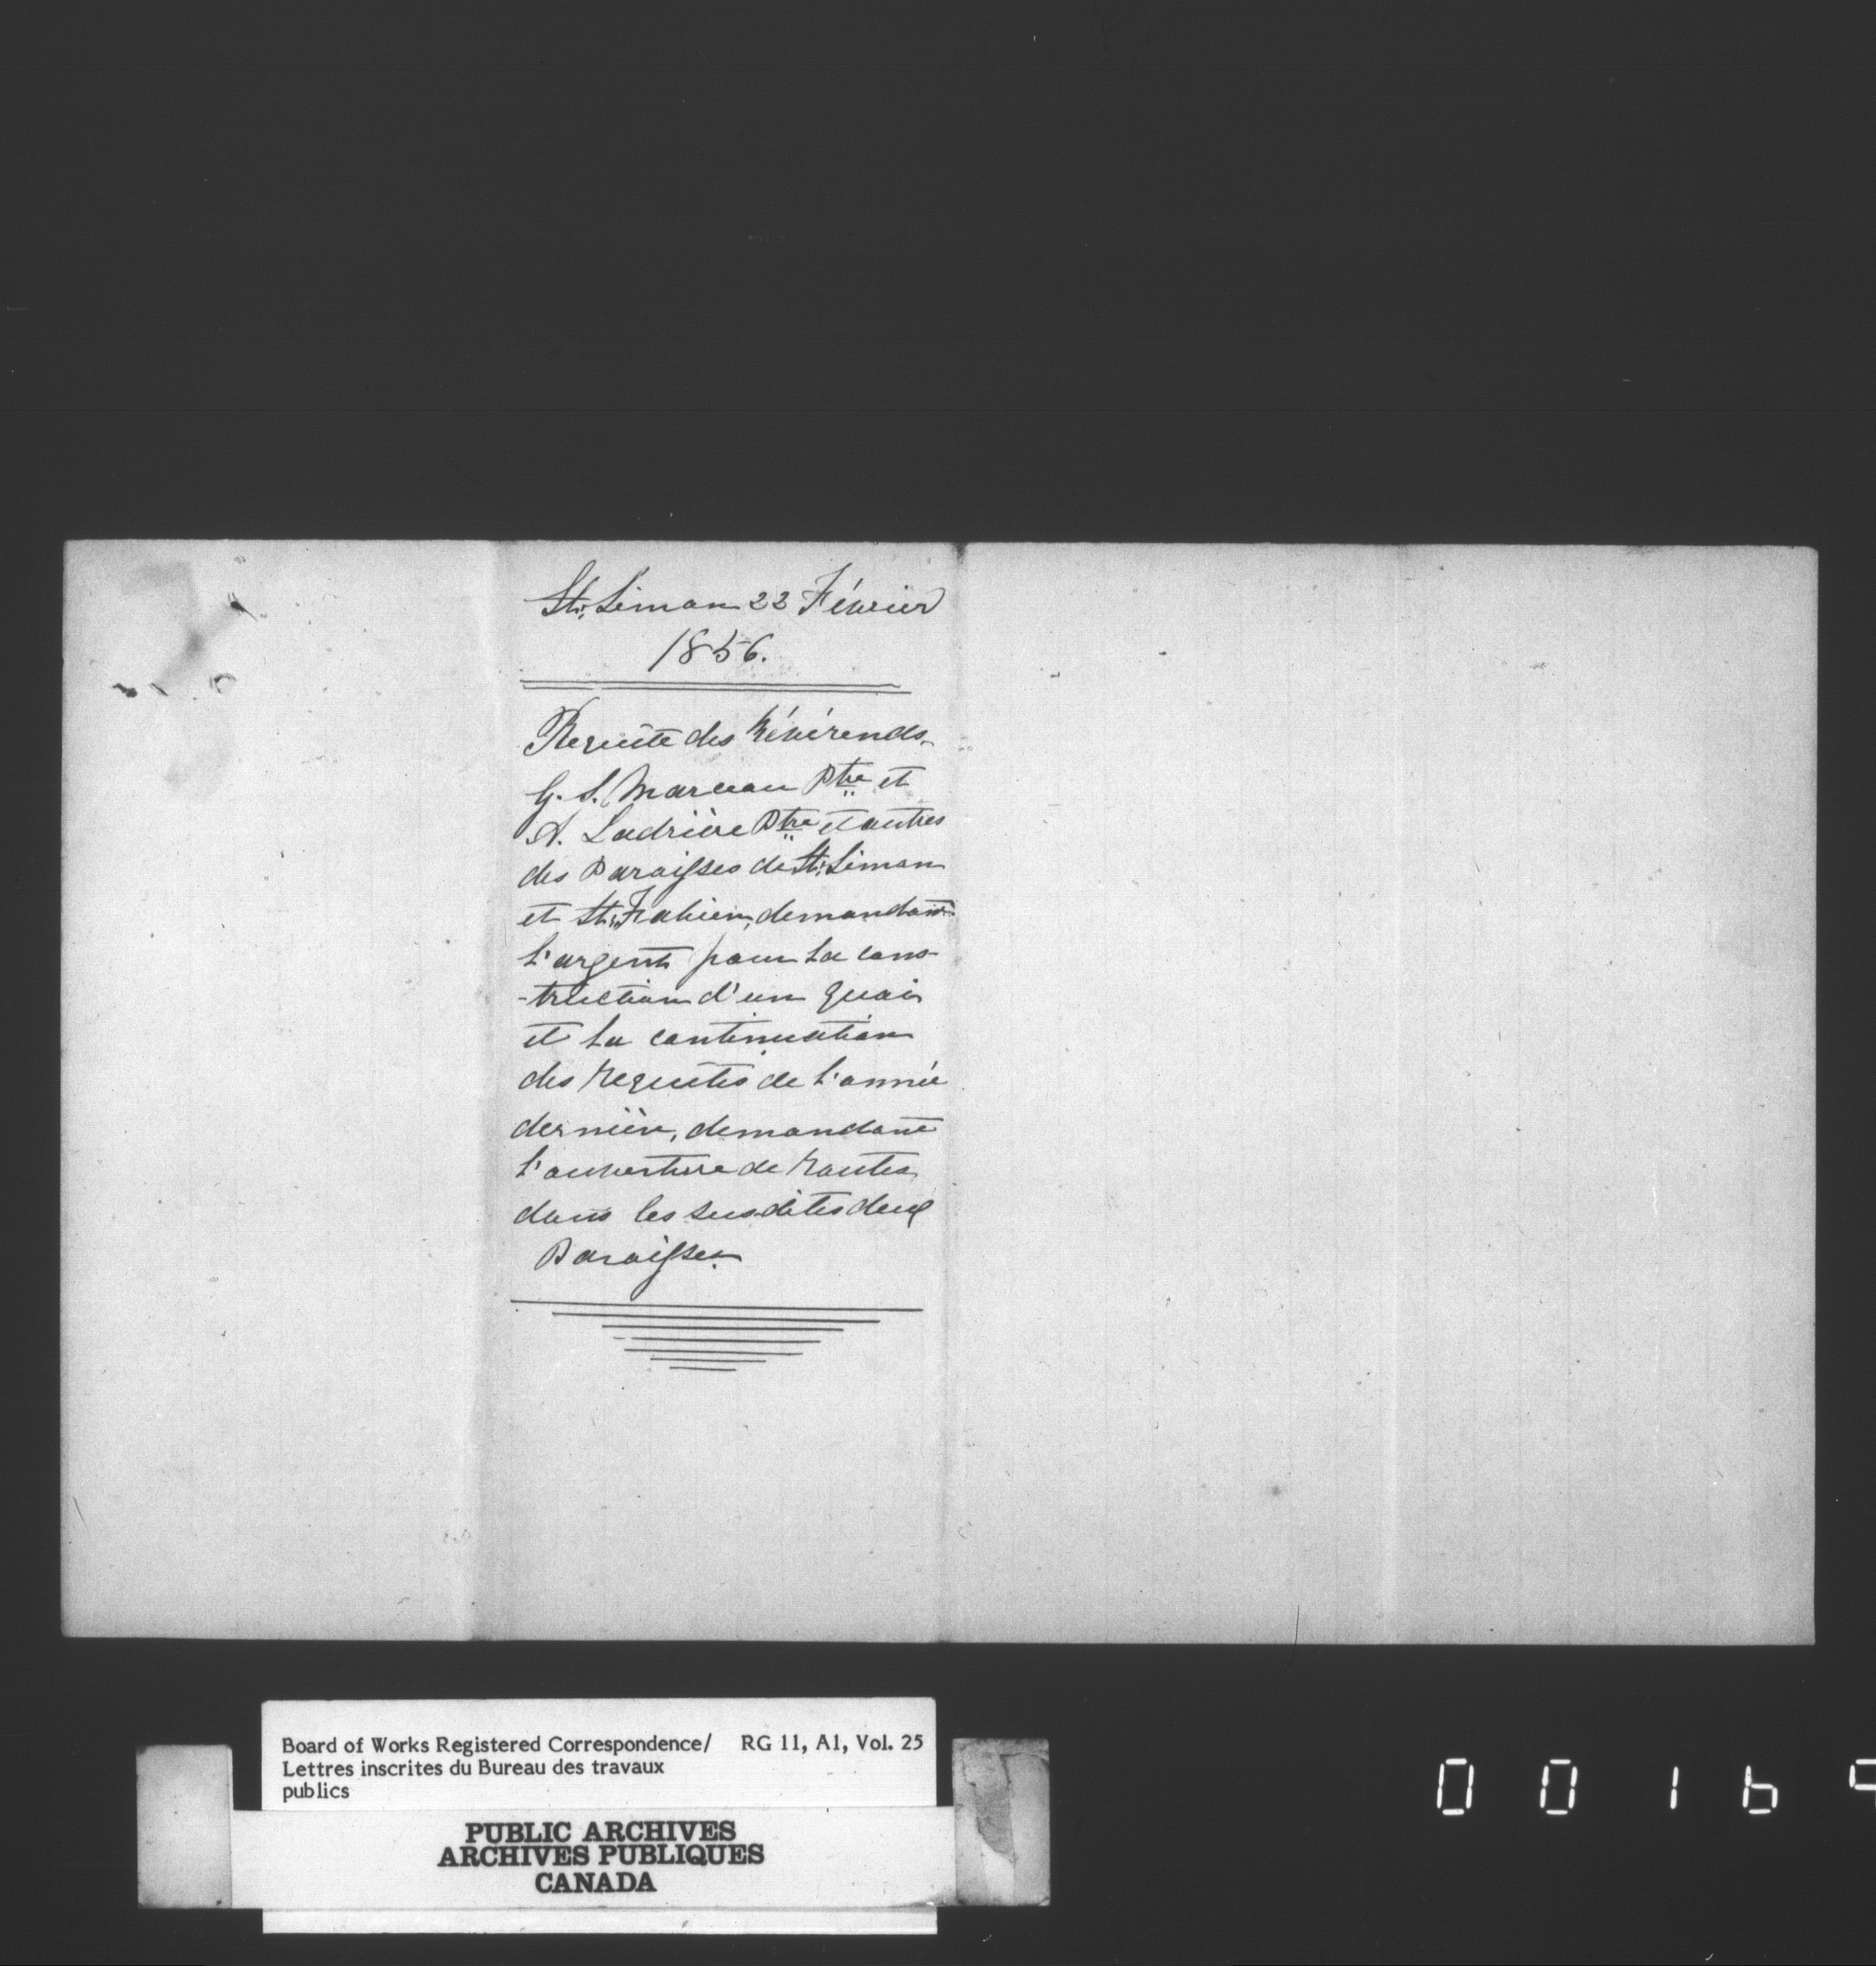 St. Simon 22 Février
1856.
Requête des Révérends
G. S. Marceau Ptre et
A. Ladrière Ptre et autres
des Paroisses de St. Simon
et St. Fabien, demandant
l'argent pour la cons-
-truction d'un quai
et la continuation
des requêtes de l'année
dernière, demandant
l'ouverture de routes
dans les susdites deux
Paroisses.
Board of Works Registered Correspondence/ RG 11, A1, Vol. 25
Lettres inscrites du Bureau des travaux
publics
PUBLIC ARCHIVES
ARCHIVES PUBLIQUES
CANADA
0 0 1 6